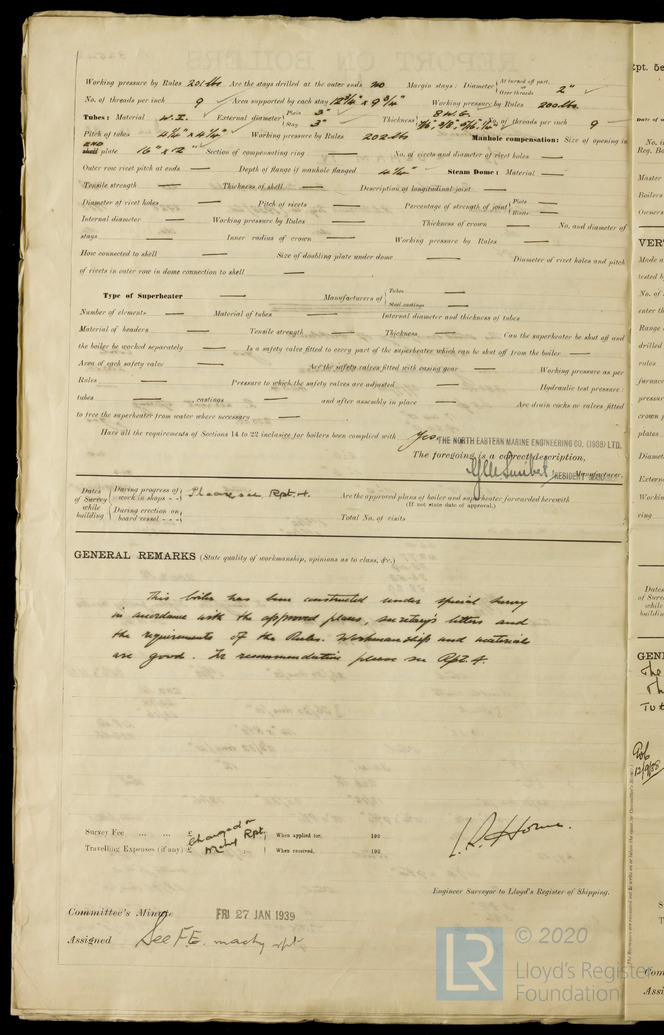 Working pressure by Rules 201 lbs Are the stays drilled at the outer ends NO Margin stays: Diameter { At turned off part, or Over threads 2"
No. of threads per inch 9 Area supported by each stay 12 3/4" x 9 3/4" Working pressure by Rules 200 lbs.
Tubes: Material W.I. External diameter { Plain 3" Stay 3" Thickness { 8 W.G. No. of threads per inch 9
Pitch of tubes 4 1/4" x 4 1/4" Working pressure by Rules 202 lbs Manhole compensation: Size of opening in
END shell plate 16" x 12" Section of compensating ring No. of rivets and diameter of rivet holes
Outer row rivet pitch at ends Depth of flange if manhole flanged 4 1/4" Steam Dome: Material
Tensile strength Thickness of shell Description of longitudinal joint
Diameter of rivet holes Pitch of rivets Percentage of strength of joint { Plate Rivets
Internal diameter Working pressure by Rules Thickness of crown No. and diameter of
stays Inner radius of crown Working pressure by Rules
How connected to shell Size of doubling plate under dome Diameter of rivet holes and pitch
of rivets in outer row in dome connection to shell
Type of Superheater Manufacturers of { Tubes Steel castings
Number of elements Material of tubes Internal diameter and thickness of tubes
Material of headers Tensile strength Thickness Can the superheater be shut off and
the boiler be worked separately Is a safety valve fitted to every part of the superheater which can be shut off from the boiler
Area of each safety valve Are the safety valves fitted with easing gear Working pressure as per
Rules Pressure to which the safety valves are adjusted Hydraulic test pressure:
tubes castings and after assembly in place Are drain cocks or valves fitted
to free the superheater from water where necessary
Have all the requirements of Sections 14 to 22 inclusive for boilers been complied with Yes.
THE NORTH EASTERN MARINE ENGINEERING CO. (1938) LTD.
The foregoing is a correct description,
RESIDENT MANAGER. Manufacturer.
Dates of Survey while building { During progress of work in shops - - } Please see Rpt. 4. Are the approved plans of boiler and superheater forwarded herewith
(If not state date of approval.)
{ During erection on board vessel - - - } Total No. of visits
GENERAL REMARKS (State quality of workmanship, opinions as to class, &c.)
This boiler has been constructed under special survey
in accordance with the approved plans, secretary's letters and
the requirements of the Rules. Workmanship and materials
are good. For recommendation please see Rpt. 4.
Survey Fee ... ... £ Charged on When applied for, 192
Travelling Expenses (if any) £ Mchy Rpt. When received, 192
Engineer Surveyor to Lloyd's Register of Shipping.
Committee's Minute FRI 27 JAN 1939
Assigned See F.E. machy rpt
LR © 2020
Lloyd's Register
Foundation